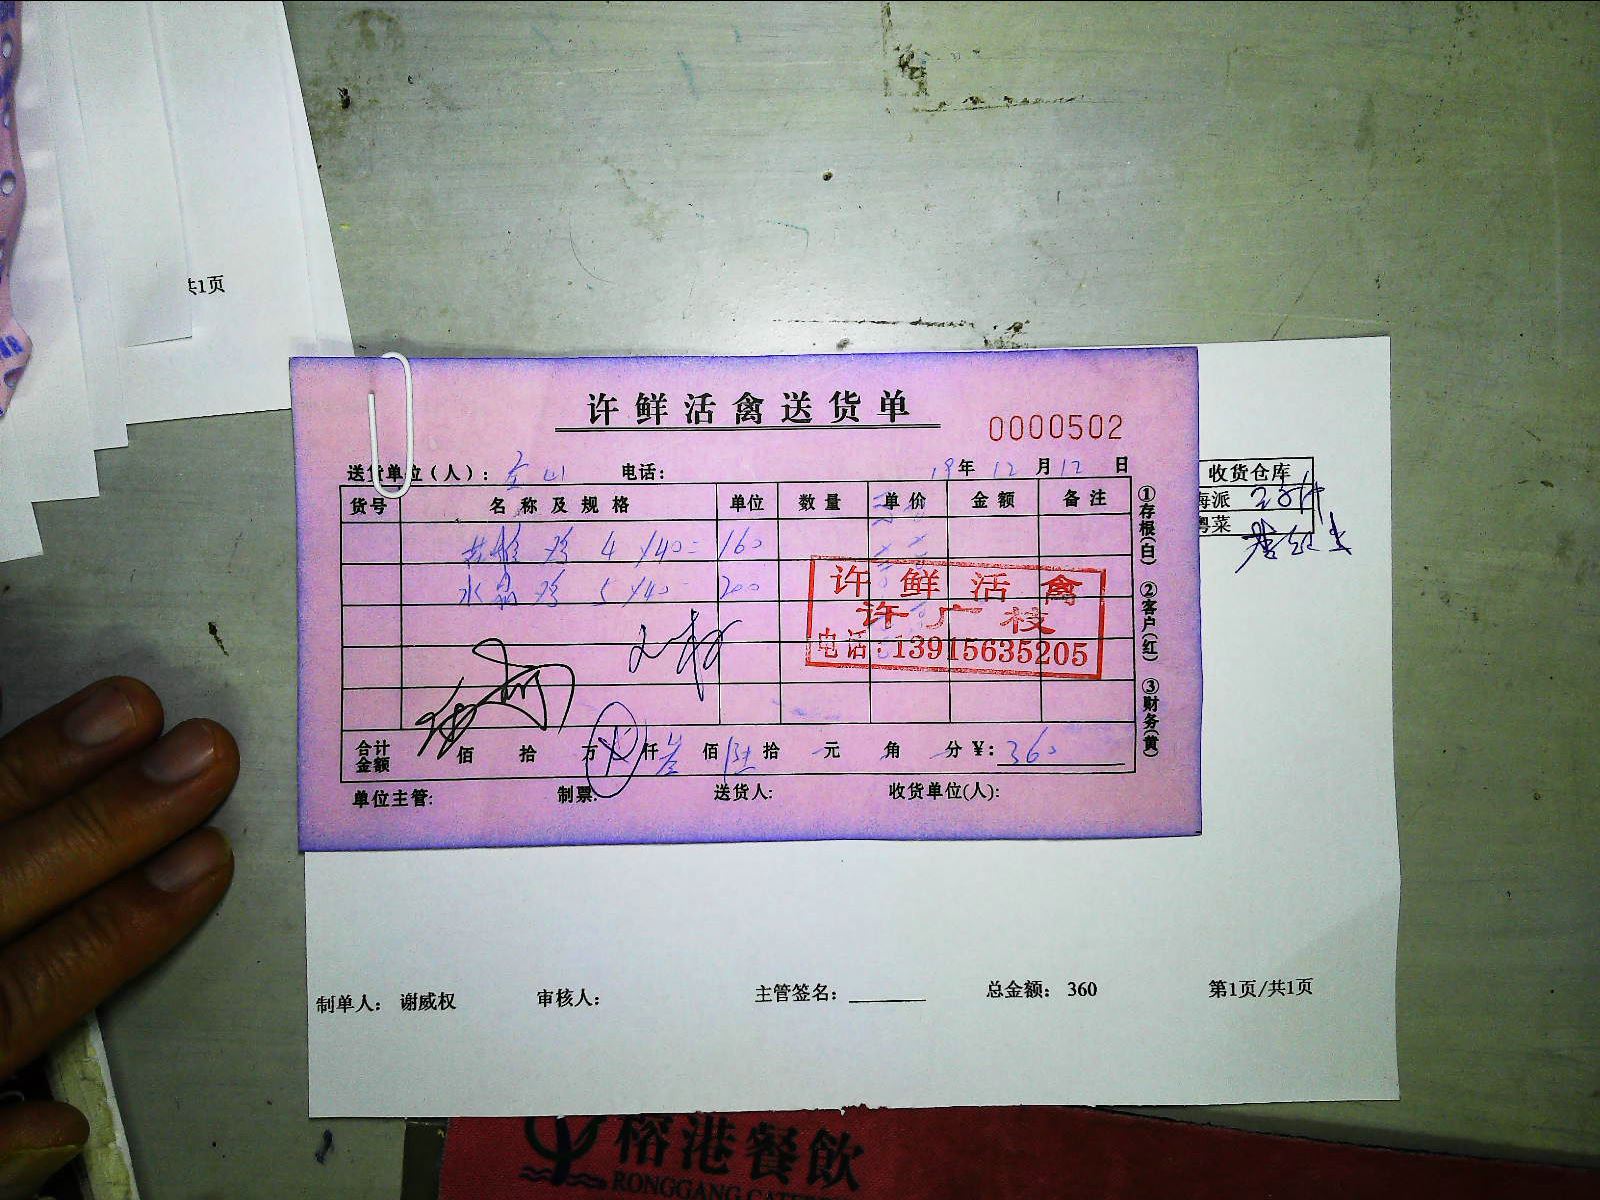 共1页
许鲜活禽送货单
0000502
送货单位(人): 金山 电话: 19年 12 月 12 日
收货仓库
海派
粤菜
货号 名称及规格 单位 数量 单价 金额 备注
鸡 4 x40= 160
水晶鸡 5 x40= 200
许鲜活禽
许广枝
电话:13915635205
合计金额 佰 拾 万 仟 叁 佰 陆 拾 元 角 分 ¥: 360
单位主管: 制票: 送货人: 收货单位(人):
①存根(白) ②客户(红) ③财务(黄)
制单人: 谢威权 审核人: 主管签名: 总金额: 360 第1页/共1页
榕港餐飲
RONGGANG CATER